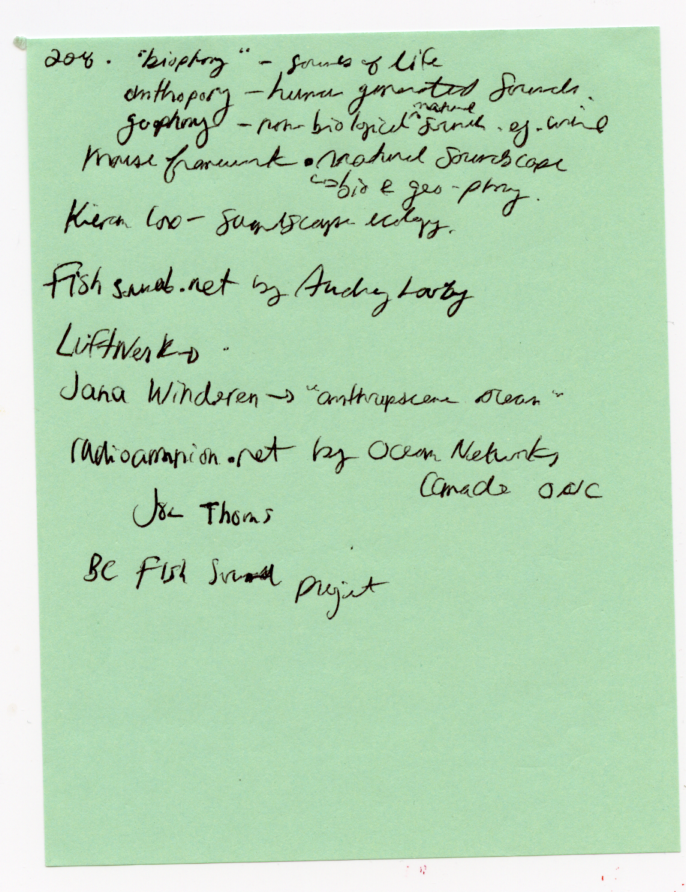 2008. "biophony" - sounds of life
anthropony - human generated sounds.
geophony - non-biological ^natural sounds. eg. wind
Krause framework • natural soundscape
↳ bio & geo-phony.
Kieran Cox - soundscape ecology.
Fish sounds.net by Audrey Looby
Luftwerk →
Jana Winderen → "anthropscene ocean"
.net by Ocean Networks
Canada ONC
Joe Thoms
BC Fish Sound project